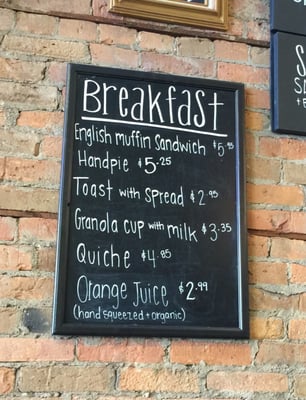 Breakfast
English muffin Sandwich $5.95
Handpie $5.25
Toast with spread $2.95
Granola cup with milk $3.35
Quiche $4.85
Orange Juice $2.99
(hand squeezed + organic)